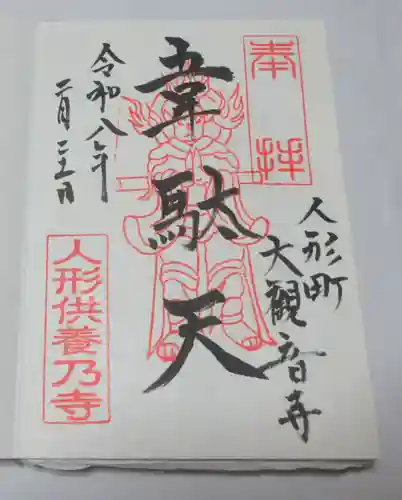 奉拝
人形町
大観音寺
韋駄天
令和八年
二月二十五日
人形供養乃寺